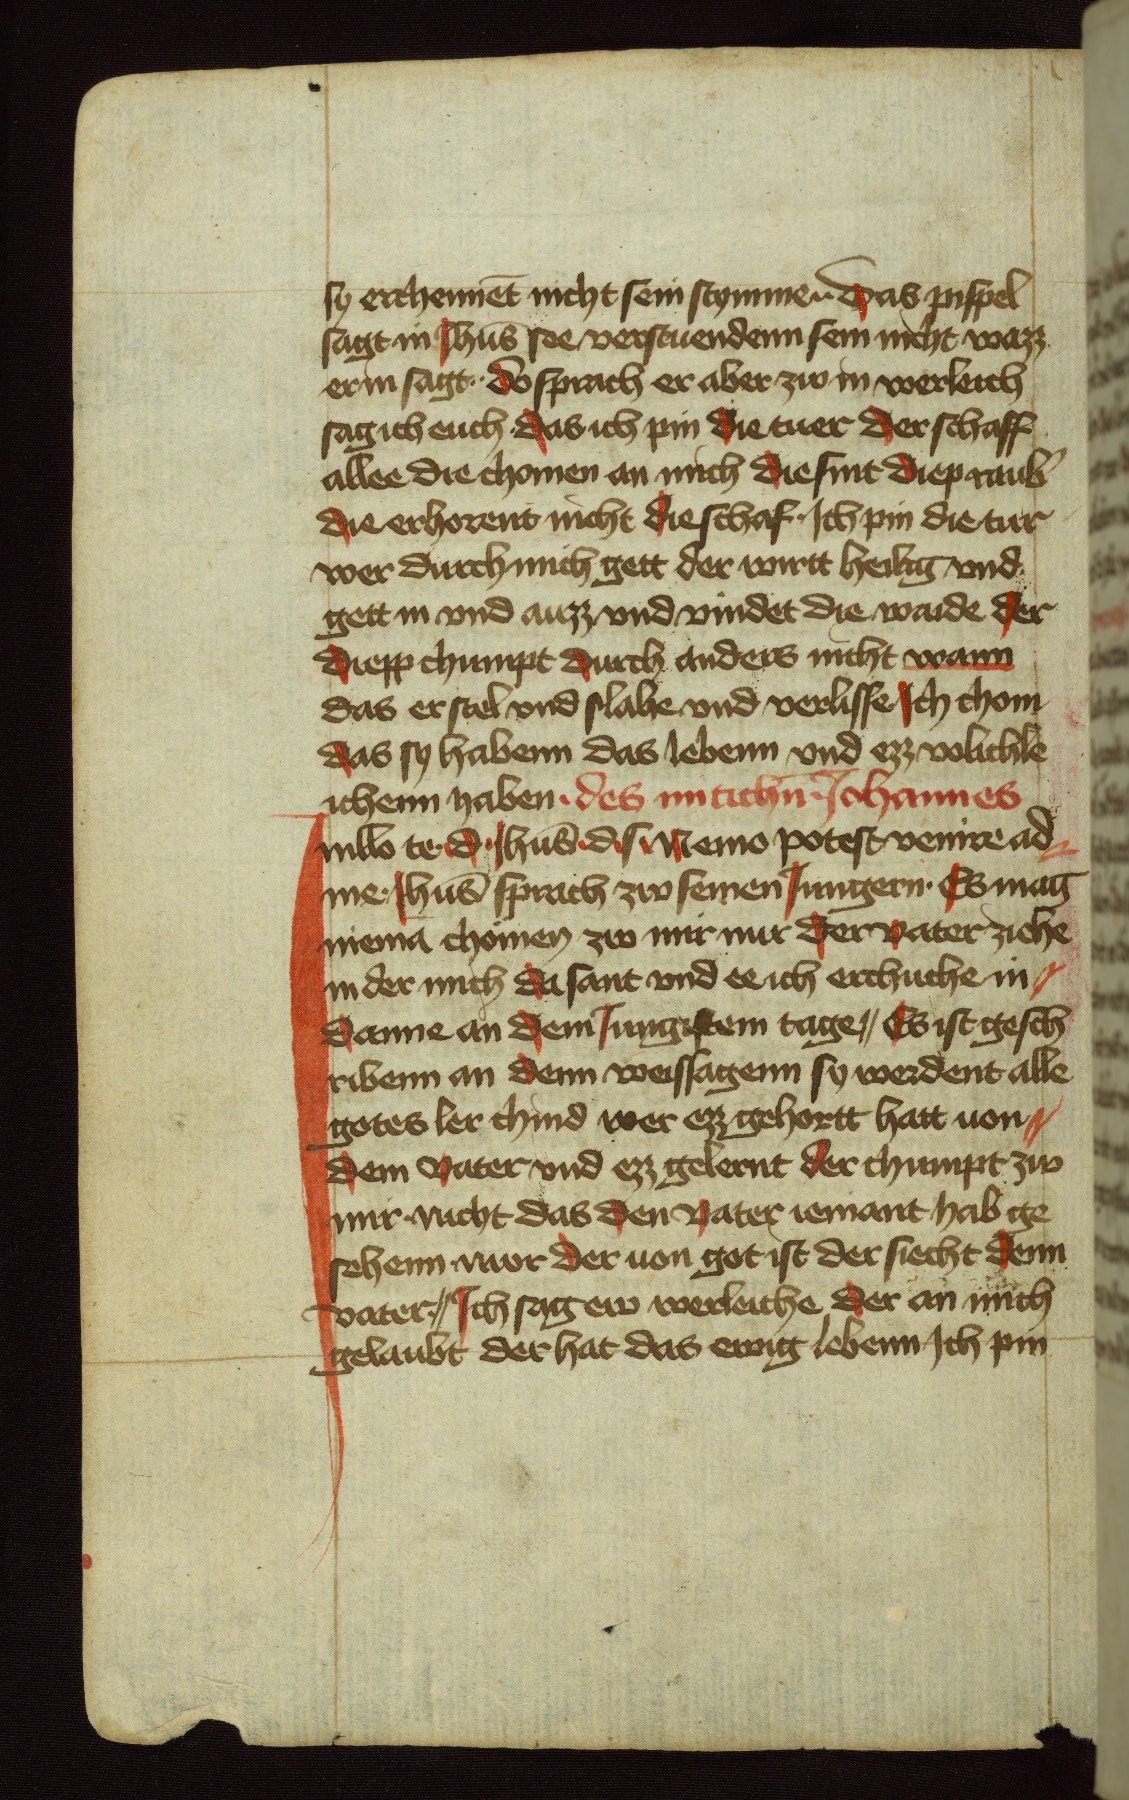 sy erchennēt nicht sein stymme. Das pispel
sagt in Jhūs see verstuendenn sein nicht wazz
er in sagt. Do sprach er aber zw in werleich
sag ich euch. das ich pin die tuer der schaff
allee die chomen an mich die sint diep raub
die erhorent nicht die schaf. Jch pin die tur
wer durch mich gett der wirtt heilig vnd
gett in vnd auzz vnd vindet die waide der
diepp chumpt durch anders nicht wann
das er stel vnd slahe vnd verlisse Jch chom
das sy habenn das lebenn vnd ezz volichle
ichenn haben. des mitichn̄. Johannes
Jn illo te. d. Jhūs. d. s. Nemo potest venire ad
me. Jhūs sprach zw seinen Jungern. Es mag
niema chomen zw mir nur der vater ziehe
in der mich da sant vnd ee ich erchuche in
danne an dem Jungistem tage Es ist gesch
ribenn an denn weissagenn sy werdent alle
gotes ler chind wer ezz gehortt hatt von
dem vater vnd ezz gelernt der chumpt zw
mir. nicht das den vater iemant hab ge
sehenn. nvor der von got ist der siecht denn
vater. Jch sag ew werleiche der an mich
gelaubt der hat das ewig lebenn Jch pin